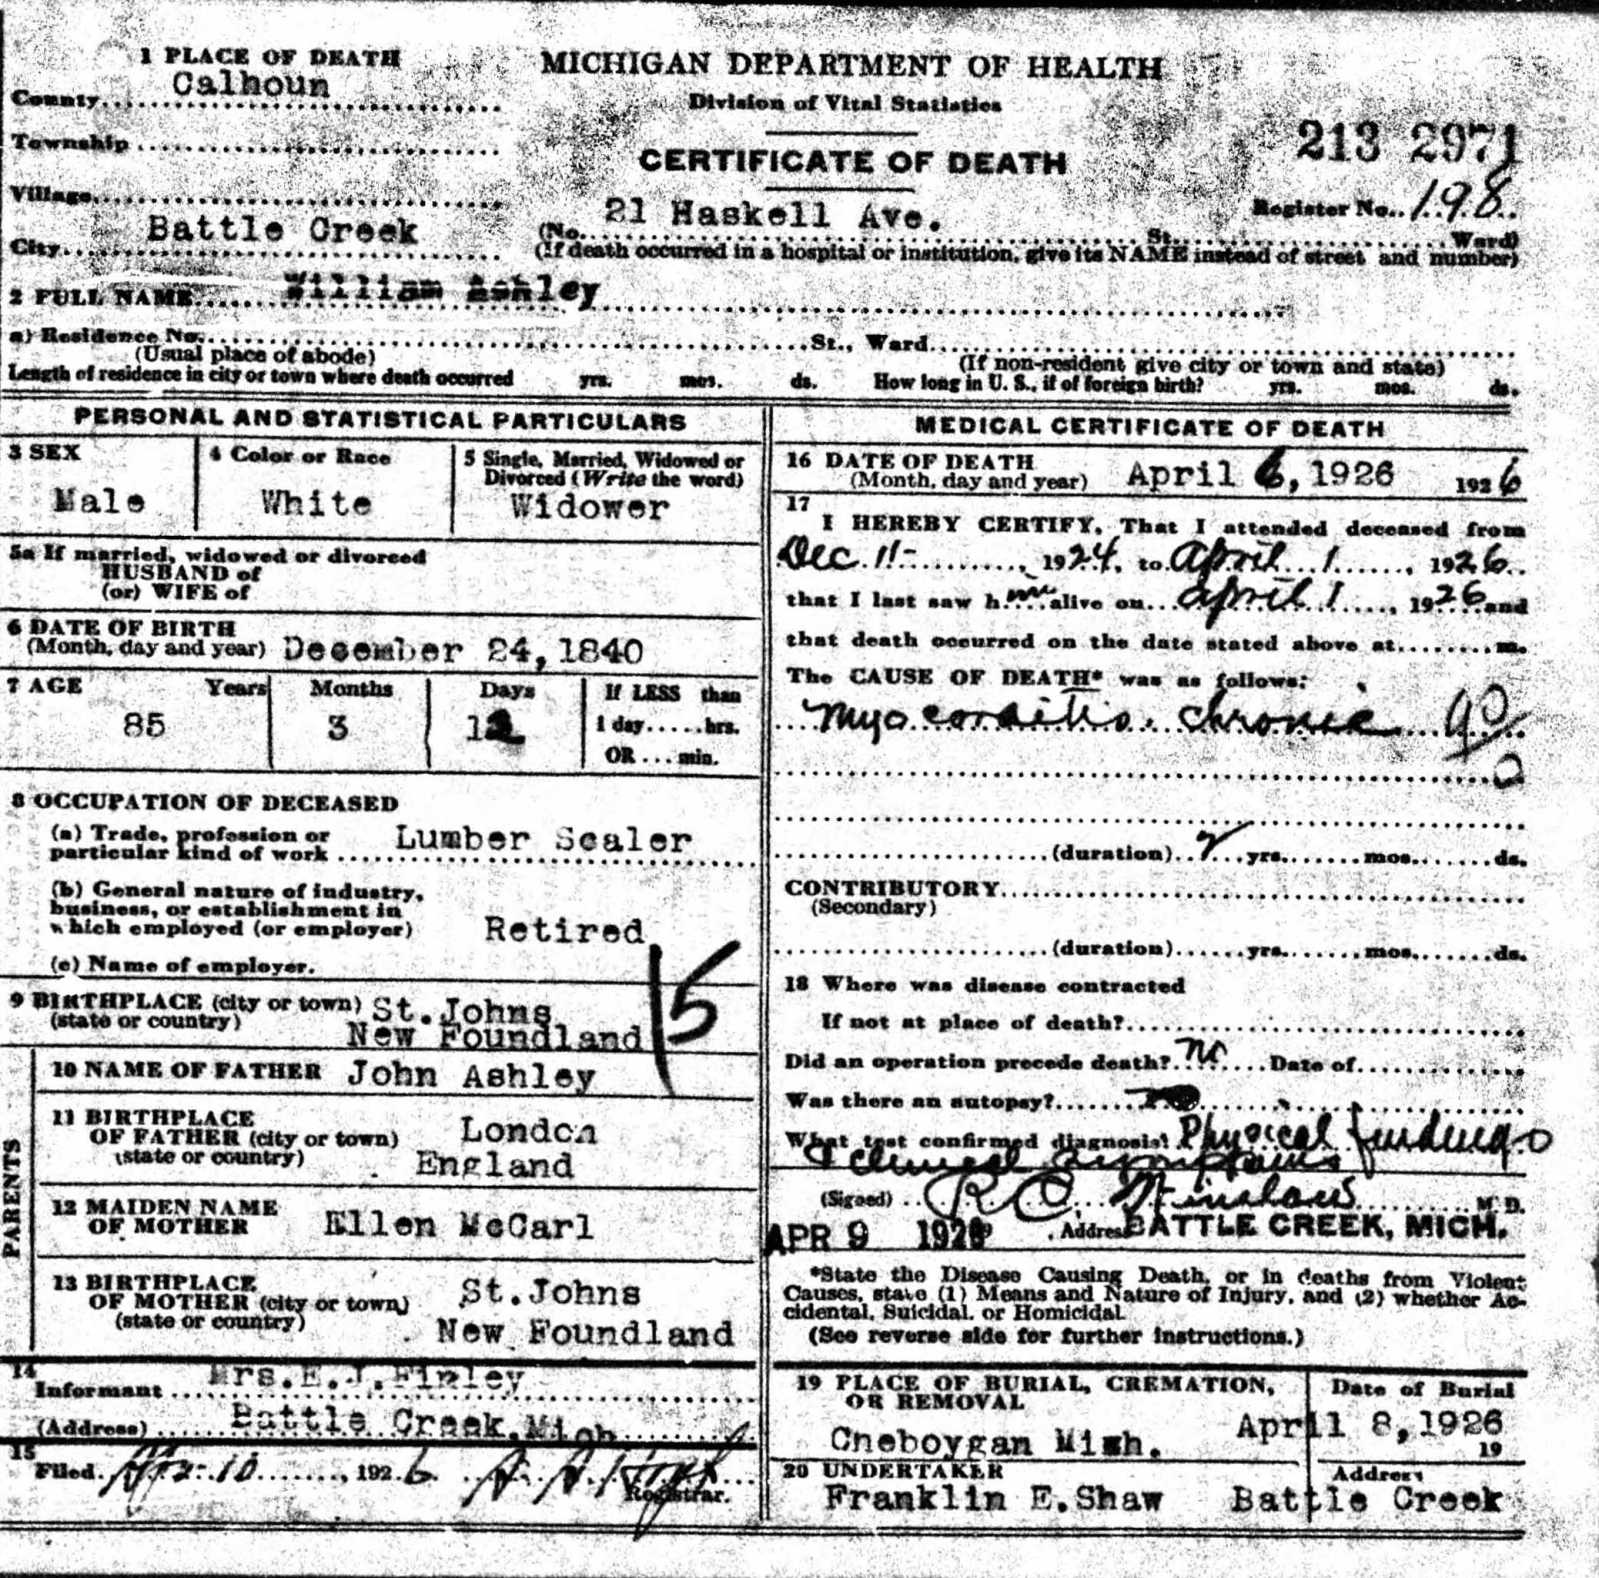 1 PLACE OF DEATH
County Calhoun
Township
Village
City Battle Creek
MICHIGAN DEPARTMENT OF HEALTH
Division of Vital Statistics
CERTIFICATE OF DEATH
213 2971
Register No. 198
(No. 21 Haskell Ave. St. Ward)
(If death occurred in a hospital or institution, give its NAME instead of street and number)
2 FULL NAME William Ashley
a) Residence No. St., Ward
(Usual place of abode) (If non-resident give city or town and state)
Length of residence in city or town where death occurred yrs. mos. ds. How long in U. S., if of foreign birth? yrs. mos. ds.
PERSONAL AND STATISTICAL PARTICULARS
3 SEX
Male
4 Color or Race
White
5 Single, Married, Widowed or
Divorced (Write the word)
Widower
5a If married, widowed or divorced
HUSBAND of
(or) WIFE of
6 DATE OF BIRTH
(Month, day and year) December 24, 1840
7 AGE Years Months Days If LESS than
85 3 12 1 day hrs.
OR min.
8 OCCUPATION OF DECEASED
(a) Trade, profession or
particular kind of work Lumber Scaler
(b) General nature of industry,
business, or establishment in
which employed (or employer) Retired
(c) Name of employer.
9 BIRTHPLACE (city or town) St.Johns
(state or country) New Foundland
15
PARENTS
10 NAME OF FATHER John Ashley
11 BIRTHPLACE
OF FATHER (city or town) London
(state or country) England
12 MAIDEN NAME
OF MOTHER Ellen McCarl
13 BIRTHPLACE
OF MOTHER (city or town) St.Johns
(state or country) New Foundland
14
Informant Mrs.E.J.Finley
(Address) Battle Creek,Mich
15
Filed Apr 10, 1926
Registrar.
MEDICAL CERTIFICATE OF DEATH
16 DATE OF DEATH
(Month, day and year) April 6, 1926 1926
17
I HEREBY CERTIFY, That I attended deceased from
Dec 11, 1924, to April 1, 1926
that I last saw him alive on April 1, 1926 and
that death occurred on the date stated above at m.
The CAUSE OF DEATH* was as follows:
Myocarditis. Chronic 90
(duration) 2 yrs. mos. ds.
CONTRIBUTORY
(Secondary)
(duration) yrs. mos. ds.
18 Where was disease contracted
If not at place of death?
Did an operation precede death? no Date of
Was there an autopsy?
What test confirmed diagnosis? Physical findings
& clinical symptoms
(Signed) R C Winslow M D.
APR 9 1926 , Address BATTLE CREEK, MICH.
*State the Disease Causing Death, or in deaths from Violent
Causes, state (1) Means and Nature of Injury, and (2) whether Ac-
cidental, Suicidal, or Homicidal
(See reverse side for further instructions.)
19 PLACE OF BURIAL, CREMATION,
OR REMOVAL
Cheboygan Mich.
Date of Burial
April 8, 1926
19
20 UNDERTAKER
Franklin E.Shaw
Address
Battle Creek